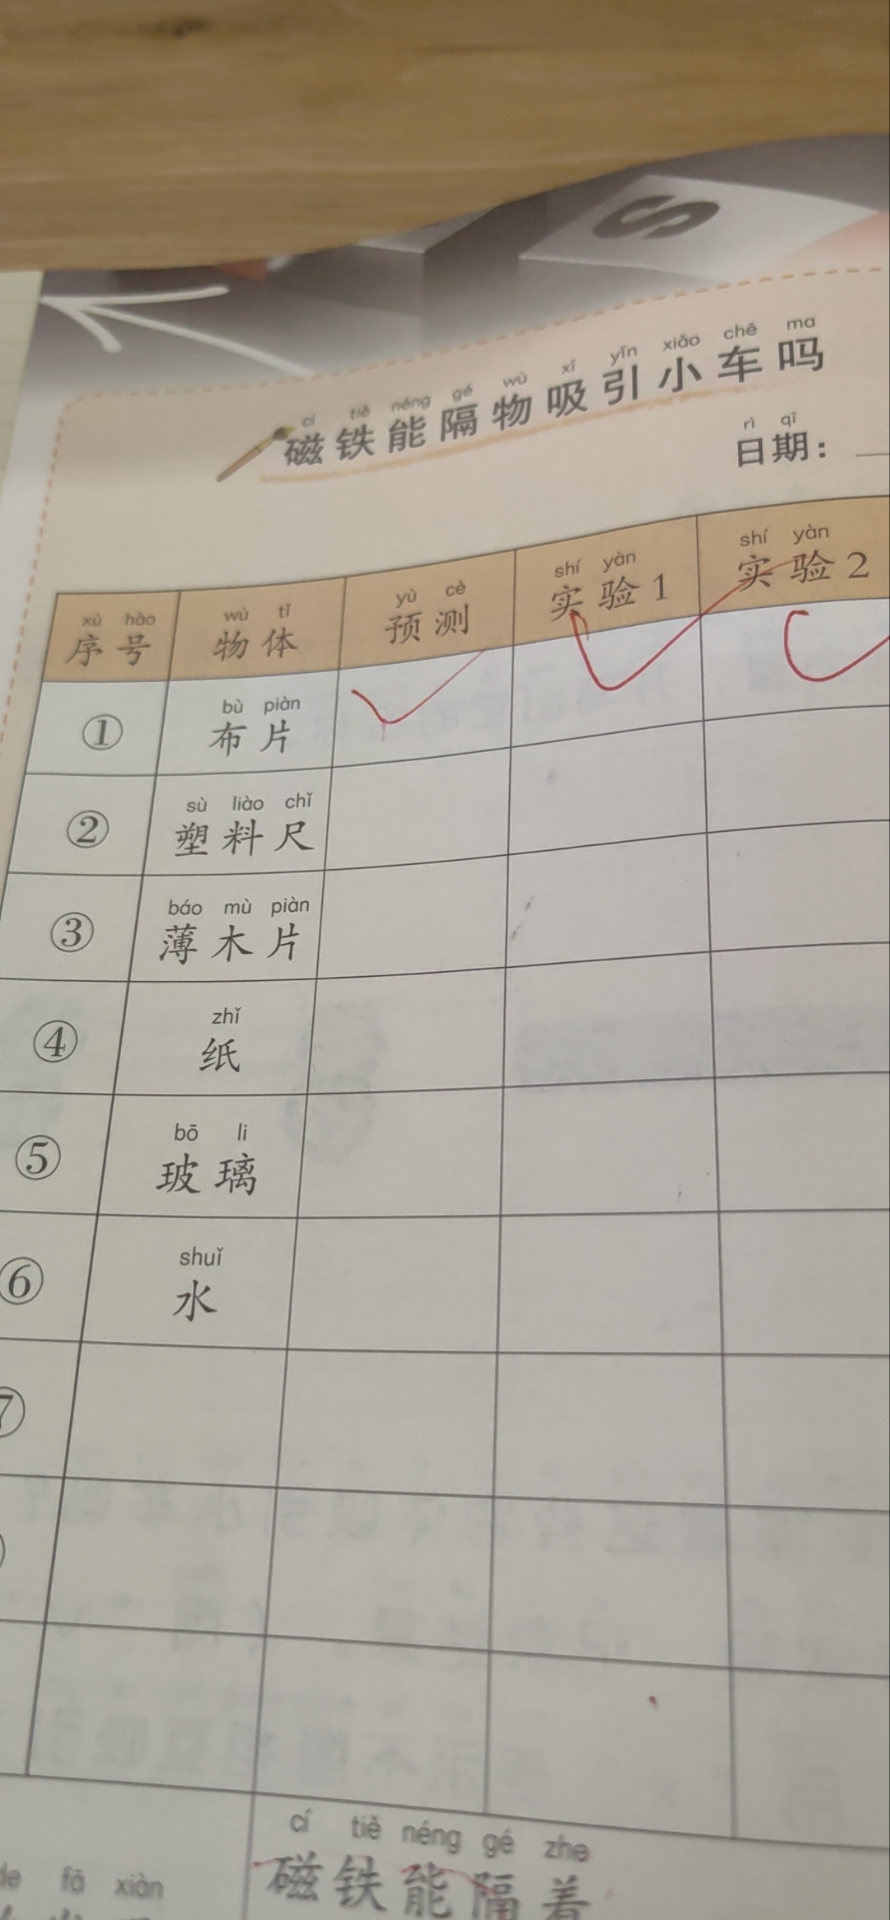 S
cí tiě néng gé wù xī yǐn xiǎo chē ma
磁铁能隔物吸引小车吗
rì qī
日期：
xù hào wù tǐ yù cè shí yàn shí yàn
序号 物体 预测 实验1 实验2
bù piàn
① 布片
sù liào chǐ
② 塑料尺
báo mù piàn
③ 薄木片
zhǐ
④ 纸
bō li
⑤ 玻璃
shuǐ
⑥ 水
7
cí tiě néng gé zhe
磁铁能隔着
de fā xiàn